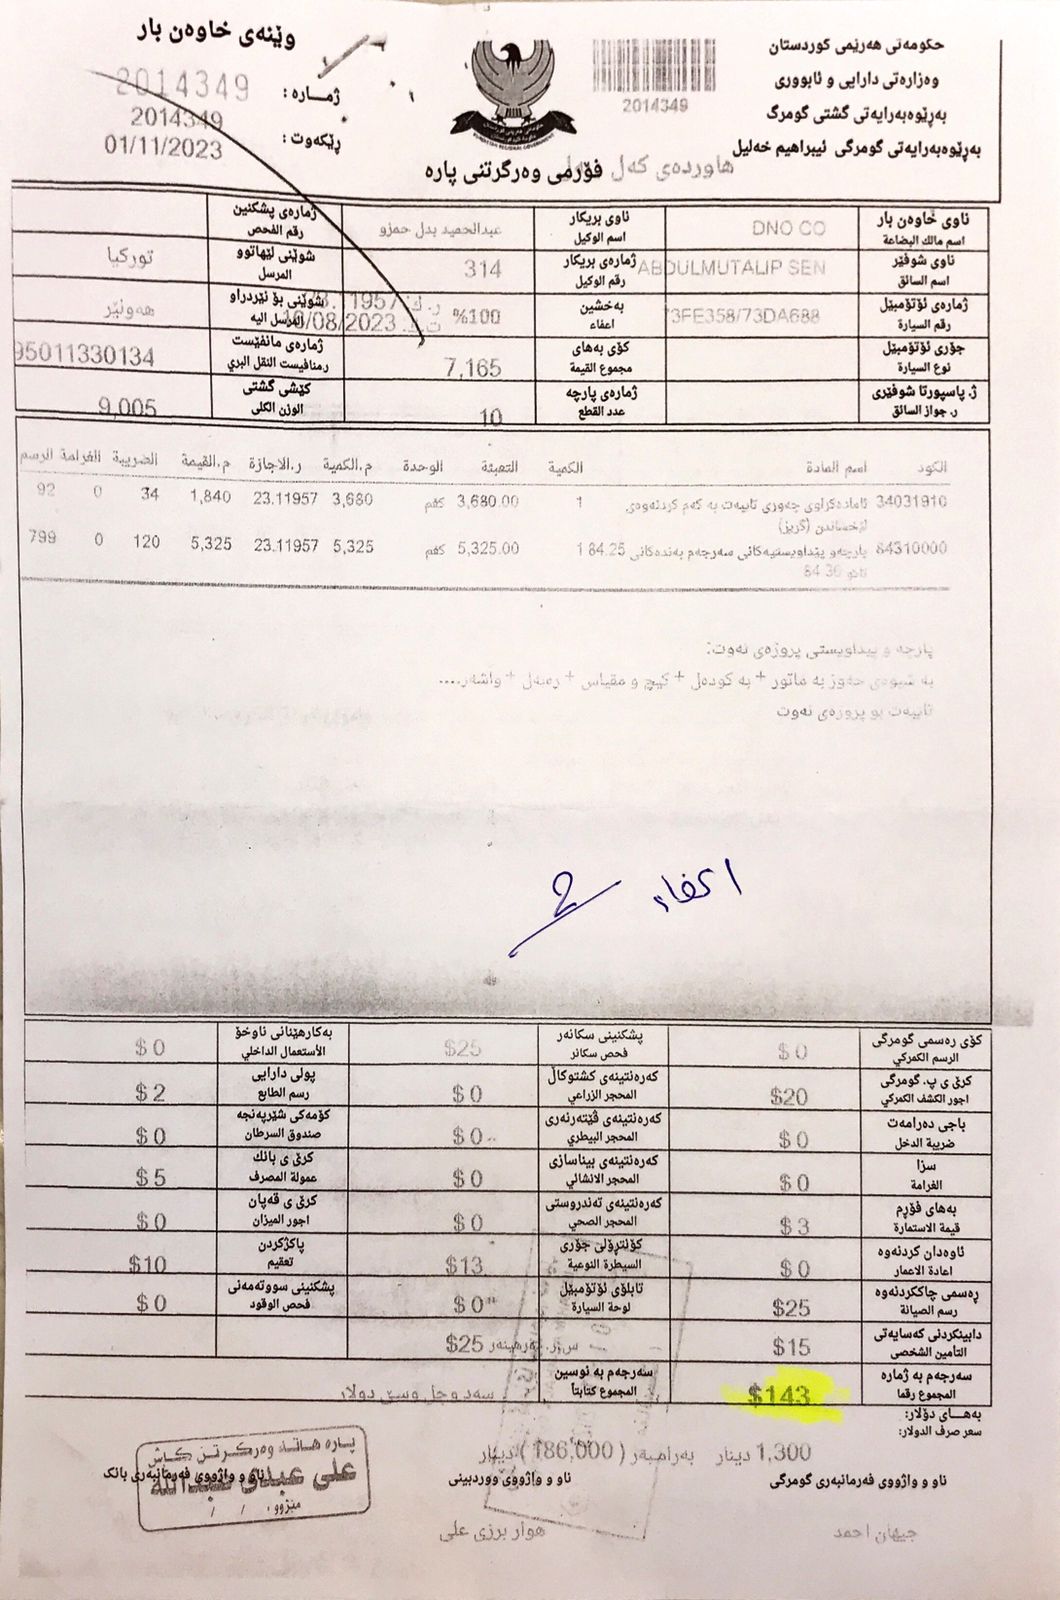 حکومەتی هەرێمی کوردستان
وەزارەتی دارایی و ئابووری
بەڕێوەبەرایەتی گشتی گومرگ
بەڕێوەبەرایەتی گومرگی ئیبراهیم خەلیل
2014349
وێنەی خاوەن بار
ژمـــارە : 2014349
2014349
ڕێکەوت: 01/11/2023
فۆرمی وەرگرتنی پارە
ناوی خاوەن بار DNO CO ناوی بریکار عبدالحمید بدل حمزو ژمارەی پشکنین
اسم مالك البضاعة اسم الوكيل رقم الفحص
ناوی شوفێر ABDULMUTALIP SEN ژمارەی بریکار 314 شوێنی لێهاتوو تورکیا
اسم السائق رقم الوكيل المرسل
ژمارەی ئۆتۆمبێل 73FE358/73DA688 بەخشین %100 شوێنی بۆ نێردراو هەولێر
رقم السيارة اعفاء المرسل اليه
جۆری ئۆتۆمبێل کۆی بەهای 7,165 ژمارەی مانفێست 95011330134
نوع السيارة مجموع القيمة ر.منافيست النقل البري
ژ. پاسپۆرتا شوفێری ژمارەی پارچە 10 کێشی گشتی 9,005
ر. جواز السائق عدد القطع الوزن الكلي
الكود اسم المادة الكمية التعبئة الوحدة م.الكمية ر.الاجازة م.القيمة الضريبة الغرامة الرسم
34031910 ئامادەکراوی چەوری تایبەت بە کەم کردنەوەی 1 3,680.00 کغم 3,680 23.11957 1,840 34 0 92
لێخشاندن (گریز)
84310000 پارچەو پێداویستیەکانی سەرجەم بەندەکانی 84.25 1 5,325.00 کغم 5,325 23.11957 5,325 120 0 799
تاکو 84.30
پارچە و پێداویستی پرۆژەی نەوت:
بە شێوەی حەوز بە ماتور + + کیچ و مقیاس + + واشەر....
تایبەت بو پرۆژەی نەوت
اعفاء
کۆی ڕەسمی گومرگی $ 0 پشکنینی سکانەر $25 بەکارهێنانی ناوخۆ $ 0
الرسم الكمركي فحص سكانر الأستعمال الداخلي
کرێ ی پ. گومرگی $20 کەرەنتینەی کشتوکاڵ $ 0 پولی دارایی $ 2
اجور الكشف الكمركي المحجر الزراعي رسم الطابع
باجی دەرامەت $ 0 کەرەنتینەی ڤێتەرنەری $ 0 کۆمەکی شێرپەنجە $ 0
ضريبة الدخل المحجر البيطري صندوق السرطان
سزا $ 0 کەرەنتینەی بیناسازی $ 0 کرێ ی بانک $ 5
الغرامة المحجر الانشائي عمولة المصرف
بەهای فۆڕم $ 3 کەرەنتینەی تەندروستی $ 0 کرێ ی قەپان $ 0
قيمة الاستمارة المحجر الصحي اجور الميزان
ئاوەدان کردنەوە $ 0 کۆنترۆلی جۆری $13 پاکژکردن $10
اعادة الاعمار السيطرة النوعية تعقيم
ڕەسمی چاککردنەوە $25 تابلۆی ئۆتۆمبێل $ 0 پشکنینی سووتەمەنی $ 0
رسم الصيانة لوحة السيارة فحص الوقود
دابینکردنی کەسایەتی $15 $25
التأمين الشخصي
سەرجەم بە ژمارە $143 سەرجەم بە نوسین سەد و چل وسێ دولار
المجموع رقما المجموع كتابتاً
بەهـــای دۆلار:
سعر صرف الدولار:
1,300 دینار بەرامبەر ( 186,000 ) دینار
ناو و واژووی فەرمانبەری گومرگی ناو و واژووی ووردبینی ناو و واژووی فەرمانبەری بانک
پارە هاتە وەرگرتن کاش
علی عبدی عبدالله
مێژوو: / /
جیهان احمد هوار برزی علی